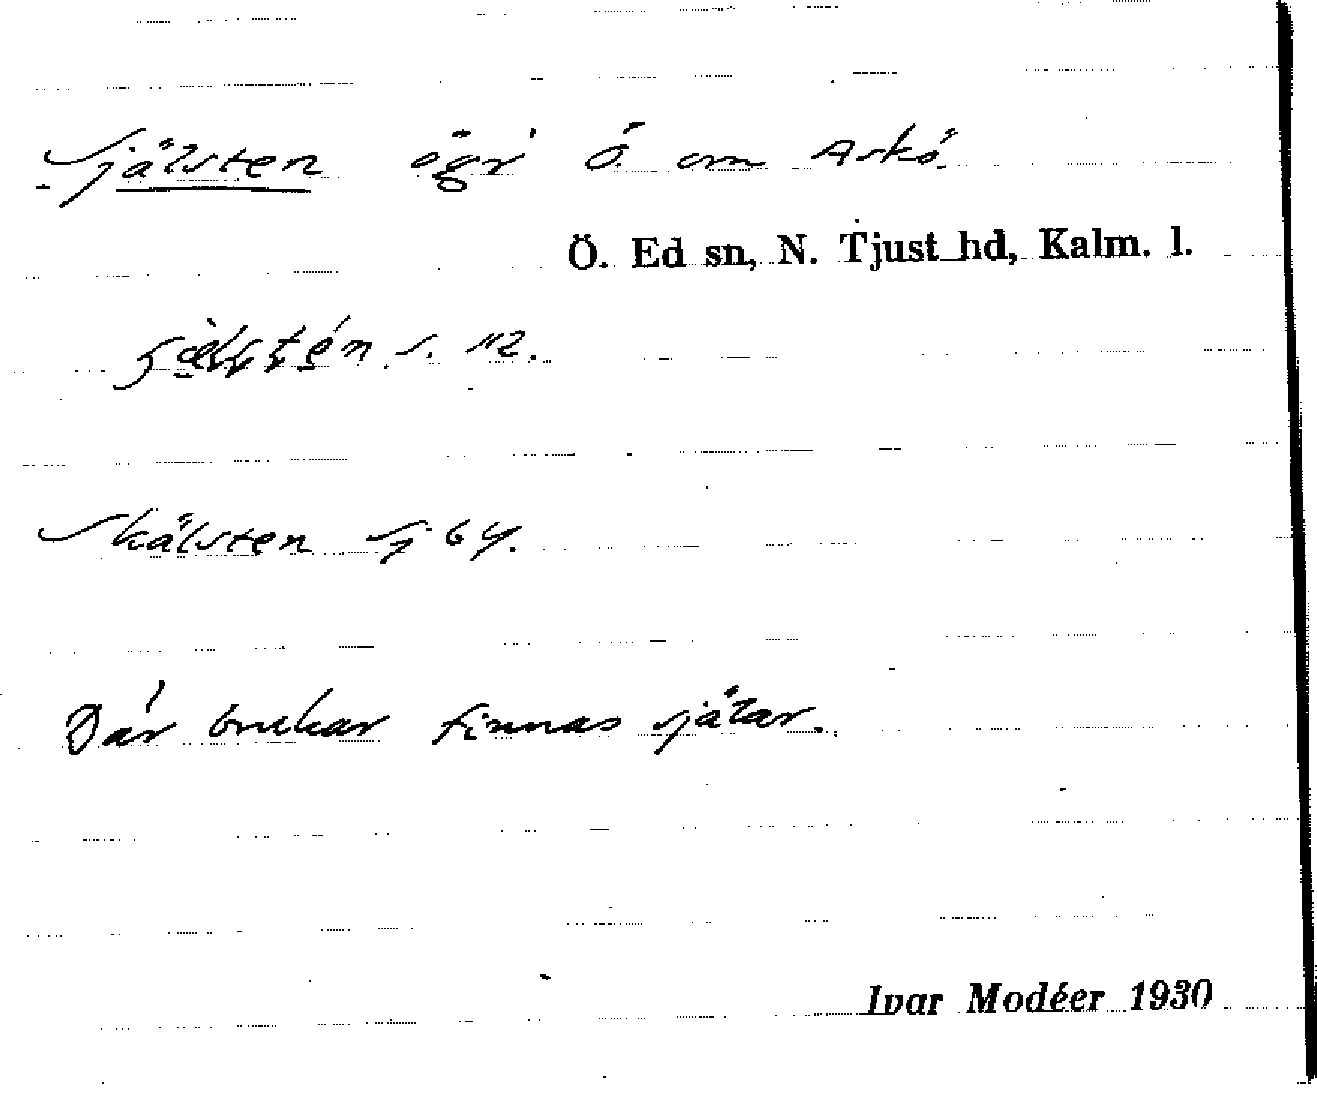 Själsten ögr Ö om Askö.
Ö. Ed sn, N. Tjust hd, Kalm. l.
s. 112.
Skälsten Sj 64.
Där brukar finnas själar.
Ivar Modéer 1930